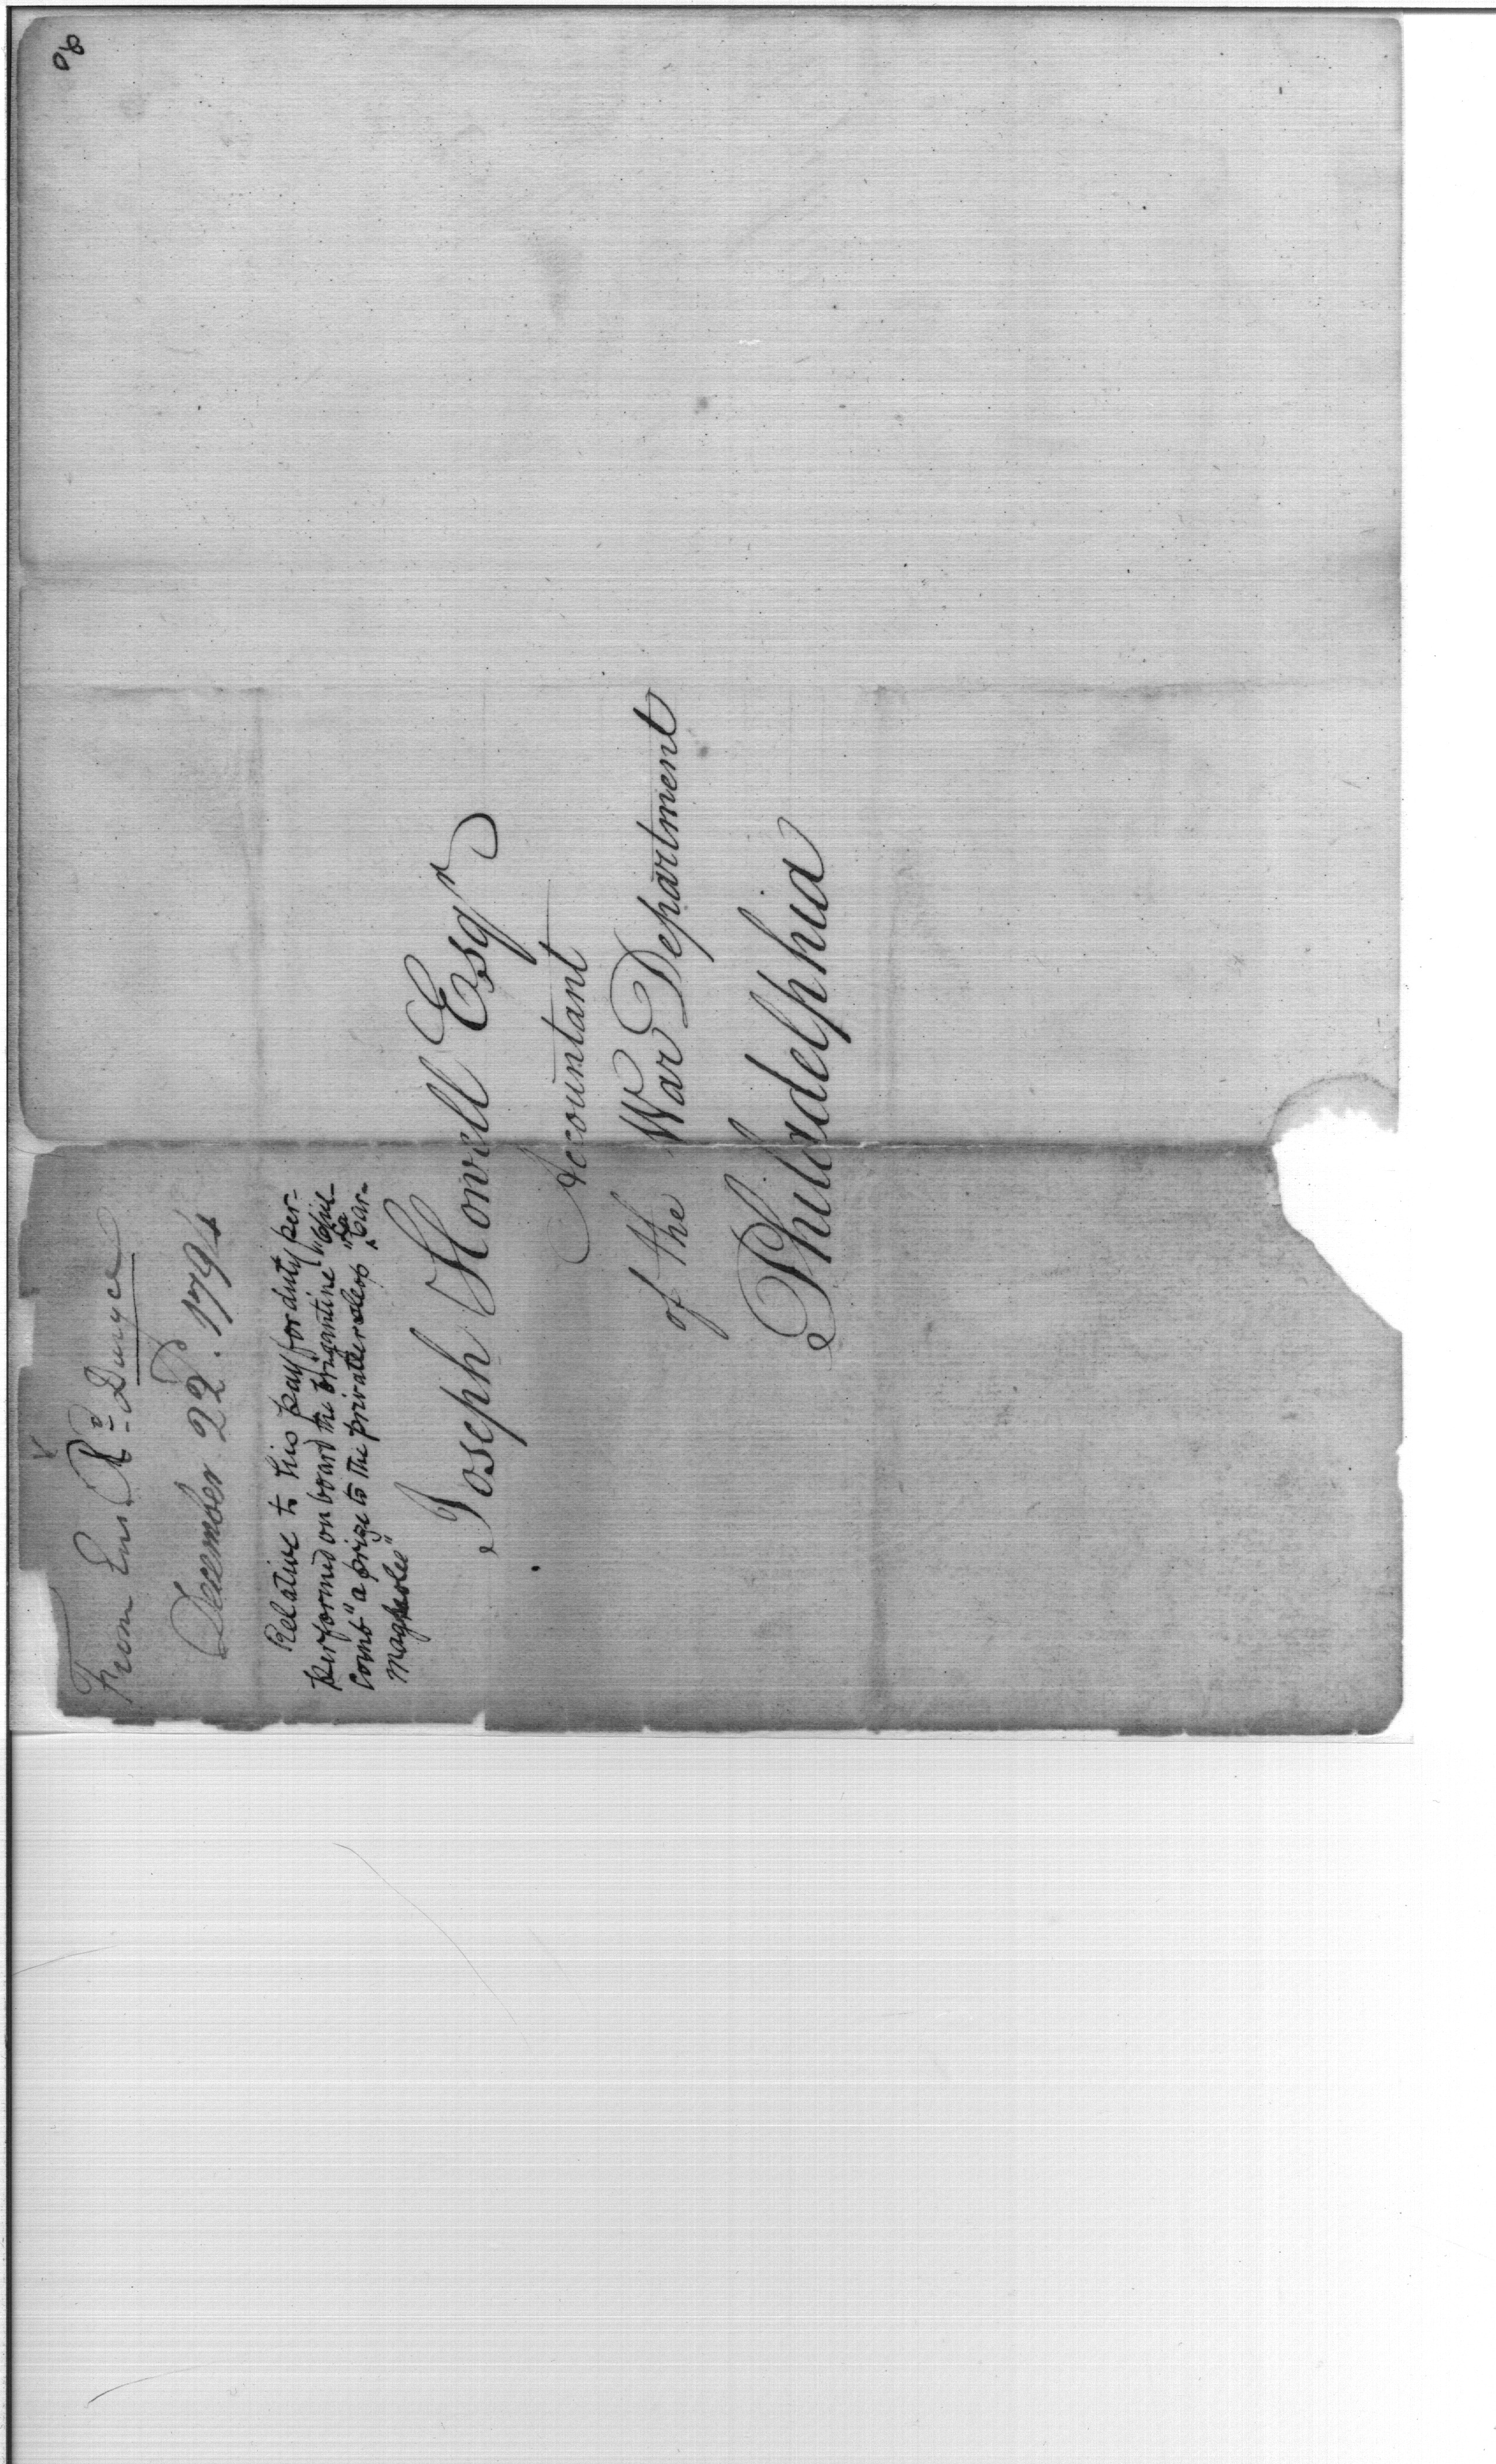 90
From Ens. Rd. Duryee
December 22d. 1794
Relative to his pay for duty per-
performed on board the brigantine
Comb" a prize to the privateer sloop "La Car-
magnole"
Joseph Howell Esqr
Accountant
of the War Department
Philadelphia